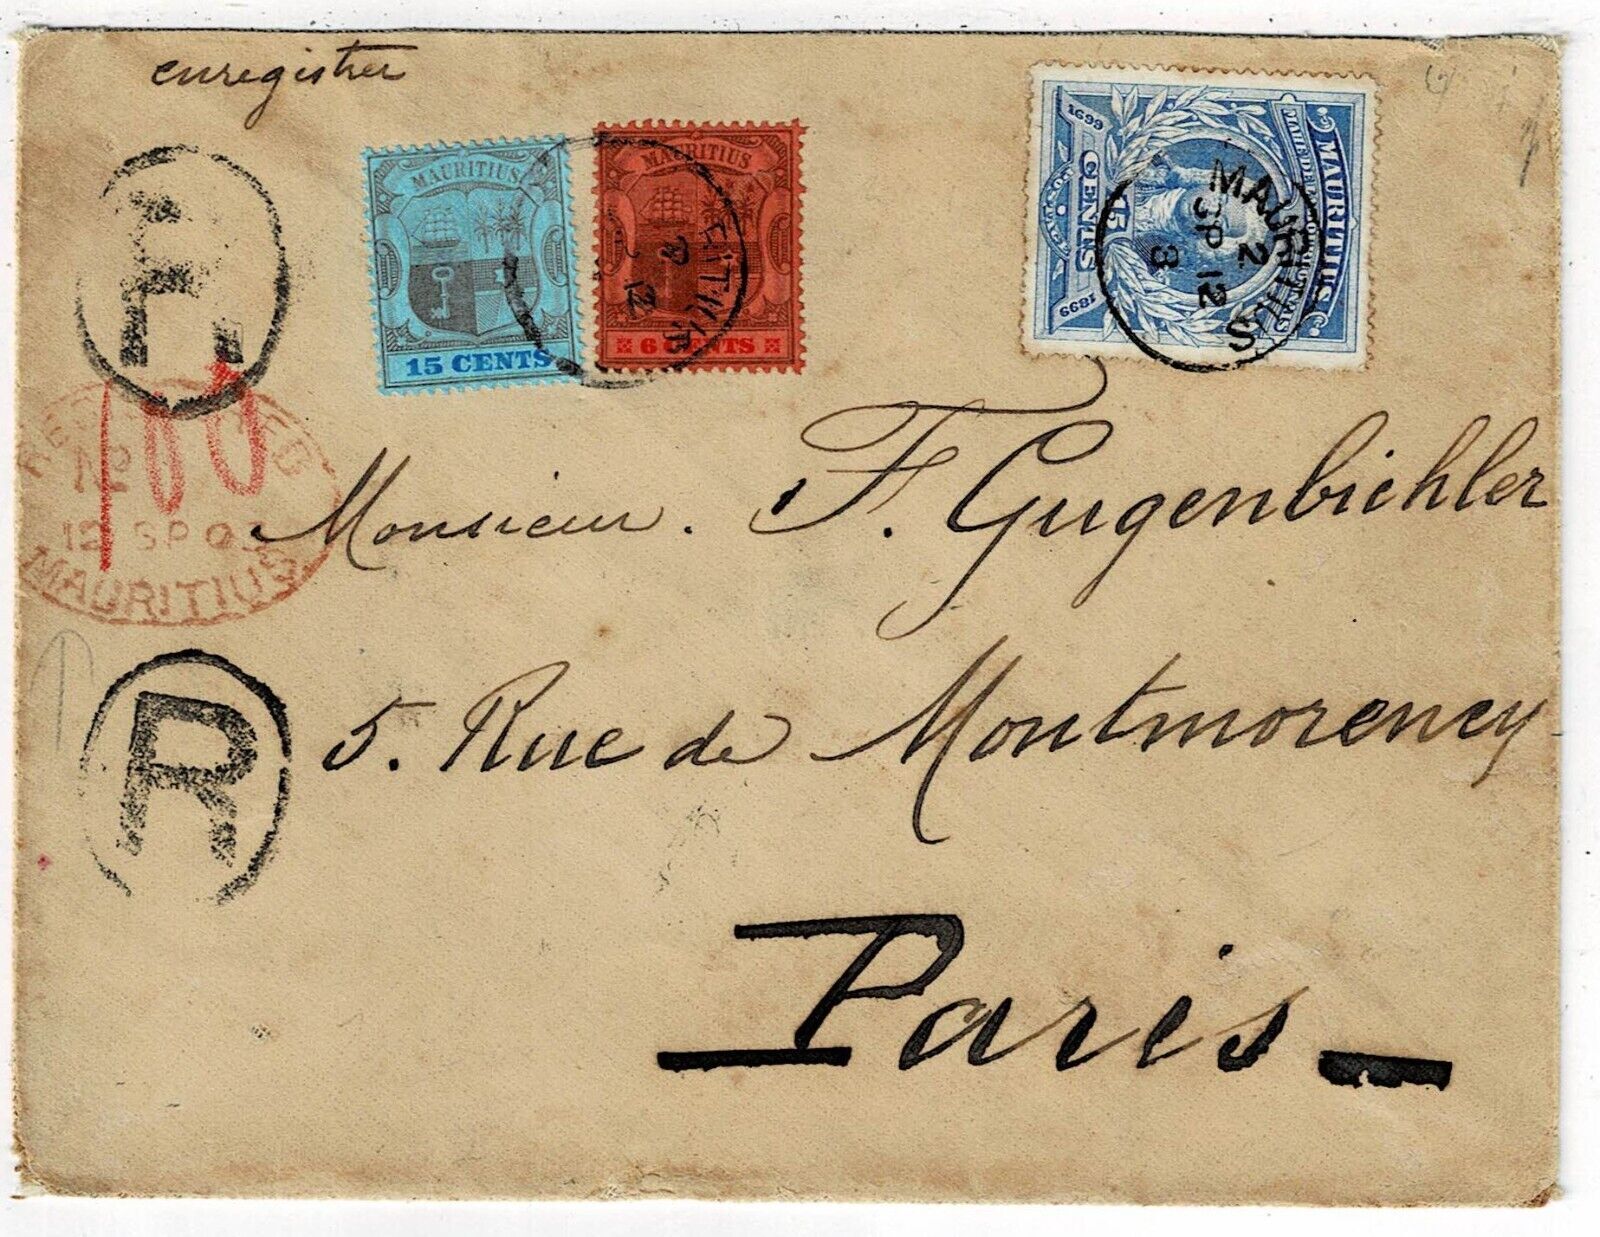 enregistrer
MAURITIUS
15 CENTS
MAURITIUS
6 CENTS
MAURITIUS
1699
1899
15
CENTS
MAURITIUS
2
SP 12
3
R
REGISTERED
No
100
12 SP 03
MAURITIUS
R
Monsieur. F. Gugenbichler
5. Rue de Montmorency
Paris